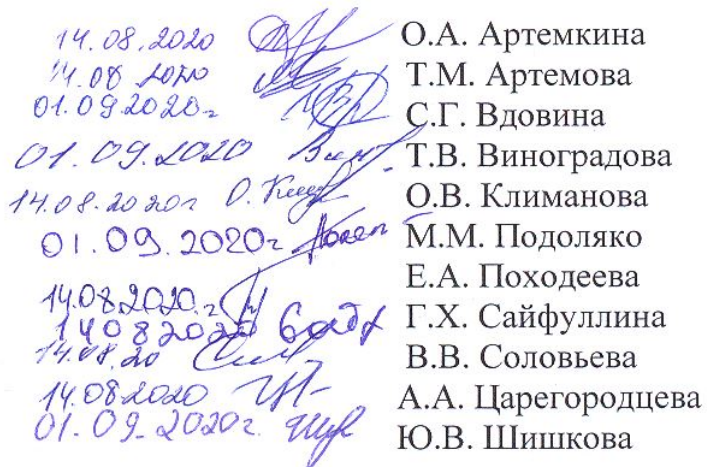 14.08.2020 О.А. Артемкина
14.08 2020 Т.М. Артемова
01.09.2020г С.Г. Вдовина
01.09.2020 Т.В. Виноградова
14.08.2020г О.В. Климанова
01.09.2020г М.М. Подоляко
14.08.2020.г Е.А. Походеева
14082020 Г.Х. Сайфуллина
14.08.20 В.В. Соловьева
14.082020 А.А. Царегородцева
01.09.2020г. Ю.В. Шишкова